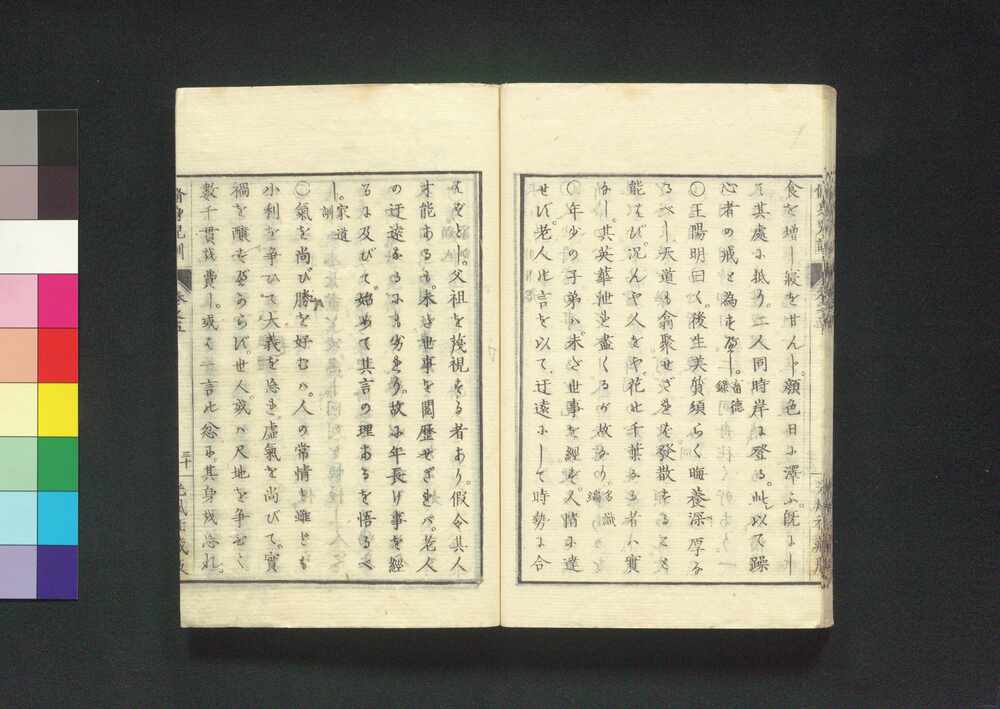 食を増し寝を甘んじ。顔色日に澤ふ。既にし
て其處に抵り。二人同時岸に登る。此以て躁
心者の戒と為すべし。畜德録
○王陽明曰く。後生美質須らく晦養深厚な
るべし。天道も翕聚せざれは發散することを
能はず。况んや人をや。花の千葉なる者ハ實
なし。其英華泄れ盡くるが故なり。名識編
○年少の子弟ハ。未だ世事を經ず。人情に達
せず。老人の言を以て。迂遠にして時勢に合
父祖を蔑視する者あり。假令其人
才能あるも。未だ世事を閲歴せざれバ。老人
の迂遠なるにも劣れり。故に年長け事を經
るに及びて。始めて其言の理あるを悟るべ
し。家道訓
○氣を尚び勝を好むハ。人の常情と雖ども
小利を争ひて大義を忘れ。虚氣を尚びて。實
禍を釀すべからず。世人或ハ尺地を争せて
數千貫を費し。或は一言の忿に。其身を忘れ。
三十